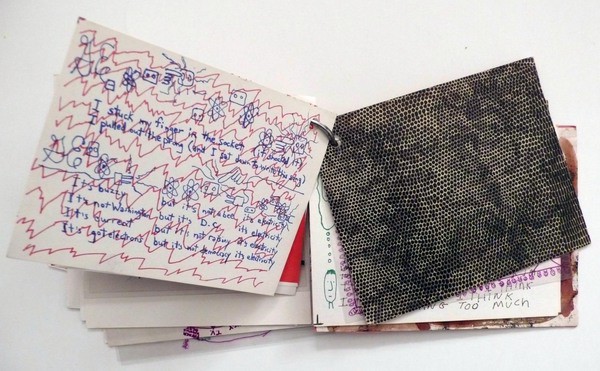 I stuck my finger in the socket
I pulled out the plug (and I sat down to write this song)
It's buzzy but it's not a bee it's electricity
It's not Washington but it's D.C. it's electricity
It's current but it's not it's electricity
It's got electrons but its not its electricity
THINK
I THINK
TOO MUCH